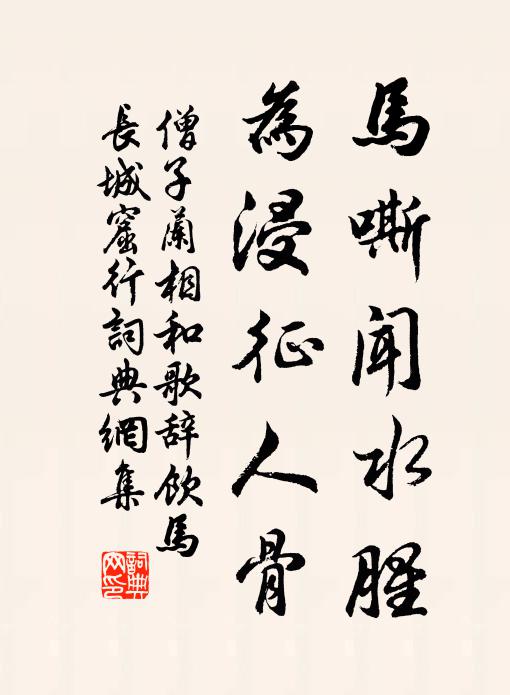 馬嘶聞水腥
為浸征人骨
僧子蘭相和歌辞飲馬
長城窟行詞典網集
詞典